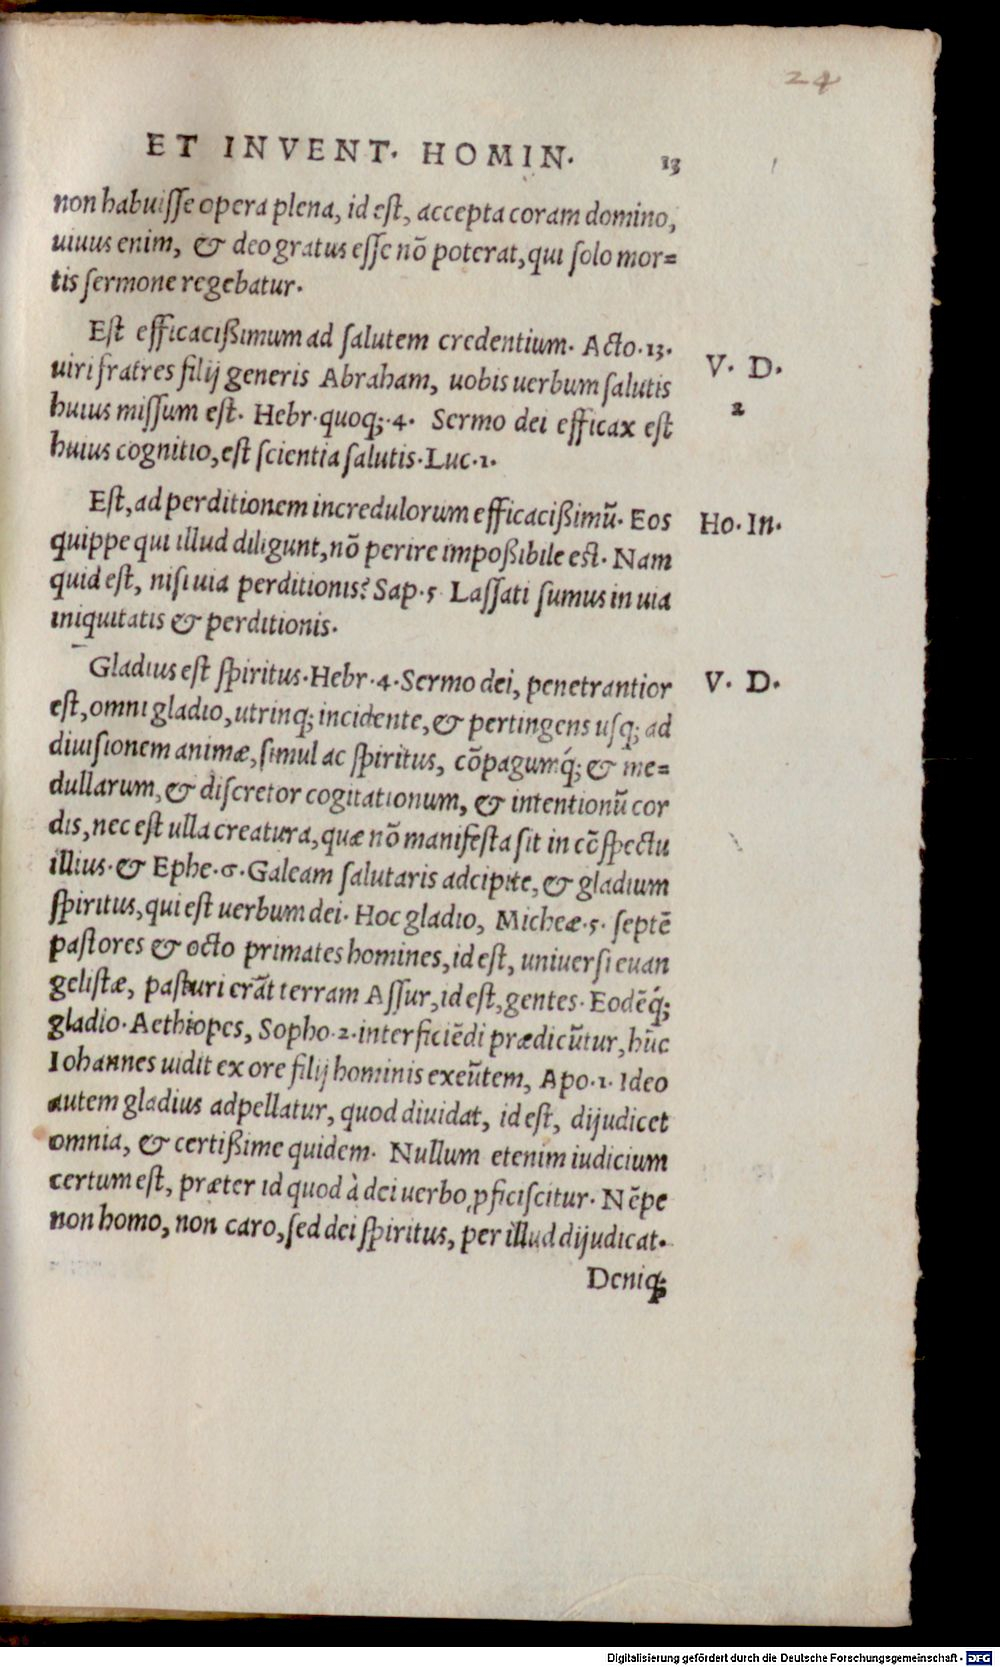 24
ET INVENT. HOMIN. 13
non habuiſſe opera plena, id eſt, accepta coram domino,
uiuus enim, & deo gratus eſſe nõ poterat, qui ſolo mor=
tis ſermone regebatur.
Eſt efficacißimum ad ſalutem credentium. Acto. 13.
V. D.
uiri fratres filij generis Abraham, uobis uerbum ſalutis
2
huius miſſum eſt. Hebr. quoq;. 4. Sermo dei efficax eſt
huius cognitio, eſt ſcientia ſalutis. Luc. 1.
Eſt, ad perditionem incredulorum efficacißimũ. Eos
Ho. In.
quippe qui illud diligunt, nõ perire impoßibile eſt. Nam
quid eſt, niſi uia perditionis? Sap. 5 Laſſati ſumus in uia
iniquitatis & perditionis.
Gladius eſt ſpiritus. Hebr. 4. Sermo dei, penetrantior
V. D.
eſt, omni gladio, utrinq; incidente, & pertingens uſq; ad
diuiſionem animæ, ſimul ac ſpiritus, cõpagumq́; & me=
dullarum, & diſcretor cogitationum, & intentionũ cor
dis, nec eſt ulla creatura, quæ nõ manifeſta ſit in cõſpectu
illius. & Ephe. 6. Galeam ſalutaris adcipite, & gladium
ſpiritus, qui eſt uerbum dei. Hoc gladio, Micheæ. 5. ſeptẽ
paſtores & octo primates homines, id eſt, uniuerſi euan
geliſtæ, paſturi erãt terram Aſſur, id eſt, gentes. Eodẽq́;
gladio. Aethiopes, Sopho. 2. interficiẽdi prædicũtur, hũc
Iohannes uidit ex ore filij hominis exeũtem, Apo. 1. Ideo
autem gladius adpellatur, quod diuidat, id eſt, dijudicet
omnia, & certißime quidem. Nullum etenim iudicium
certum eſt, præter id quod à dei uerbo ꝓficiſcitur. Nẽpe
non homo, non caro, ſed dei ſpiritus, per illud dijudicat.
Deniq;
Digitalisierung gefördert durch die Deutsche Forschungsgemeinschaft - DFG